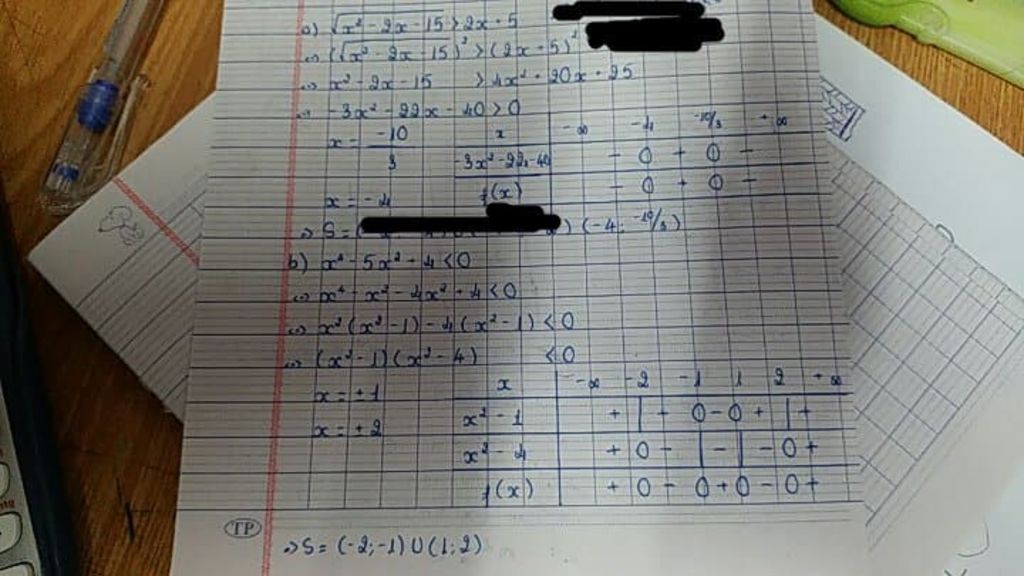 a) √x² - 2x - 15 > 2x + 5
⇔ (√x² - 2x - 15)² > (2x + 5)²
⇔ x² - 2x - 15 > 4x² + 20x + 25
⇔ -3x² - 22x - 40 > 0
x = -10/3
x = -4
x -∞ -4 -10/3 +∞
-3x² - 22x - 40 - 0 + 0 -
f(x) - 0 + 0 -
⇒ S = ( ) (-4; -10/3)
b) x⁴ - 5x² + 4 < 0
⇔ x⁴ - x² - 4x² + 4 < 0
⇔ x² (x² - 1) - 4 (x² - 1) < 0
⇔ (x² - 1) (x² - 4) < 0
x = ±1
x = ±2
x -∞ -2 -1 1 2 +∞
x² - 1 + | + 0 - 0 + | +
x² - 4 + 0 - | - | - 0 +
f(x) + 0 - 0 + 0 - 0 +
TP
⇒ S = (-2; -1) U (1; 2)